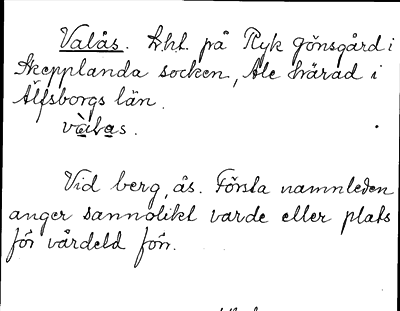 Valås. Lht. på Ryk Jönsgård i
Skepplanda socken, Ale härad i
Älfsborgs län.
vàlas.
Vid berg, ås. Första namnleden
anger sannolikt varde eller plats
för vårdeld förr.